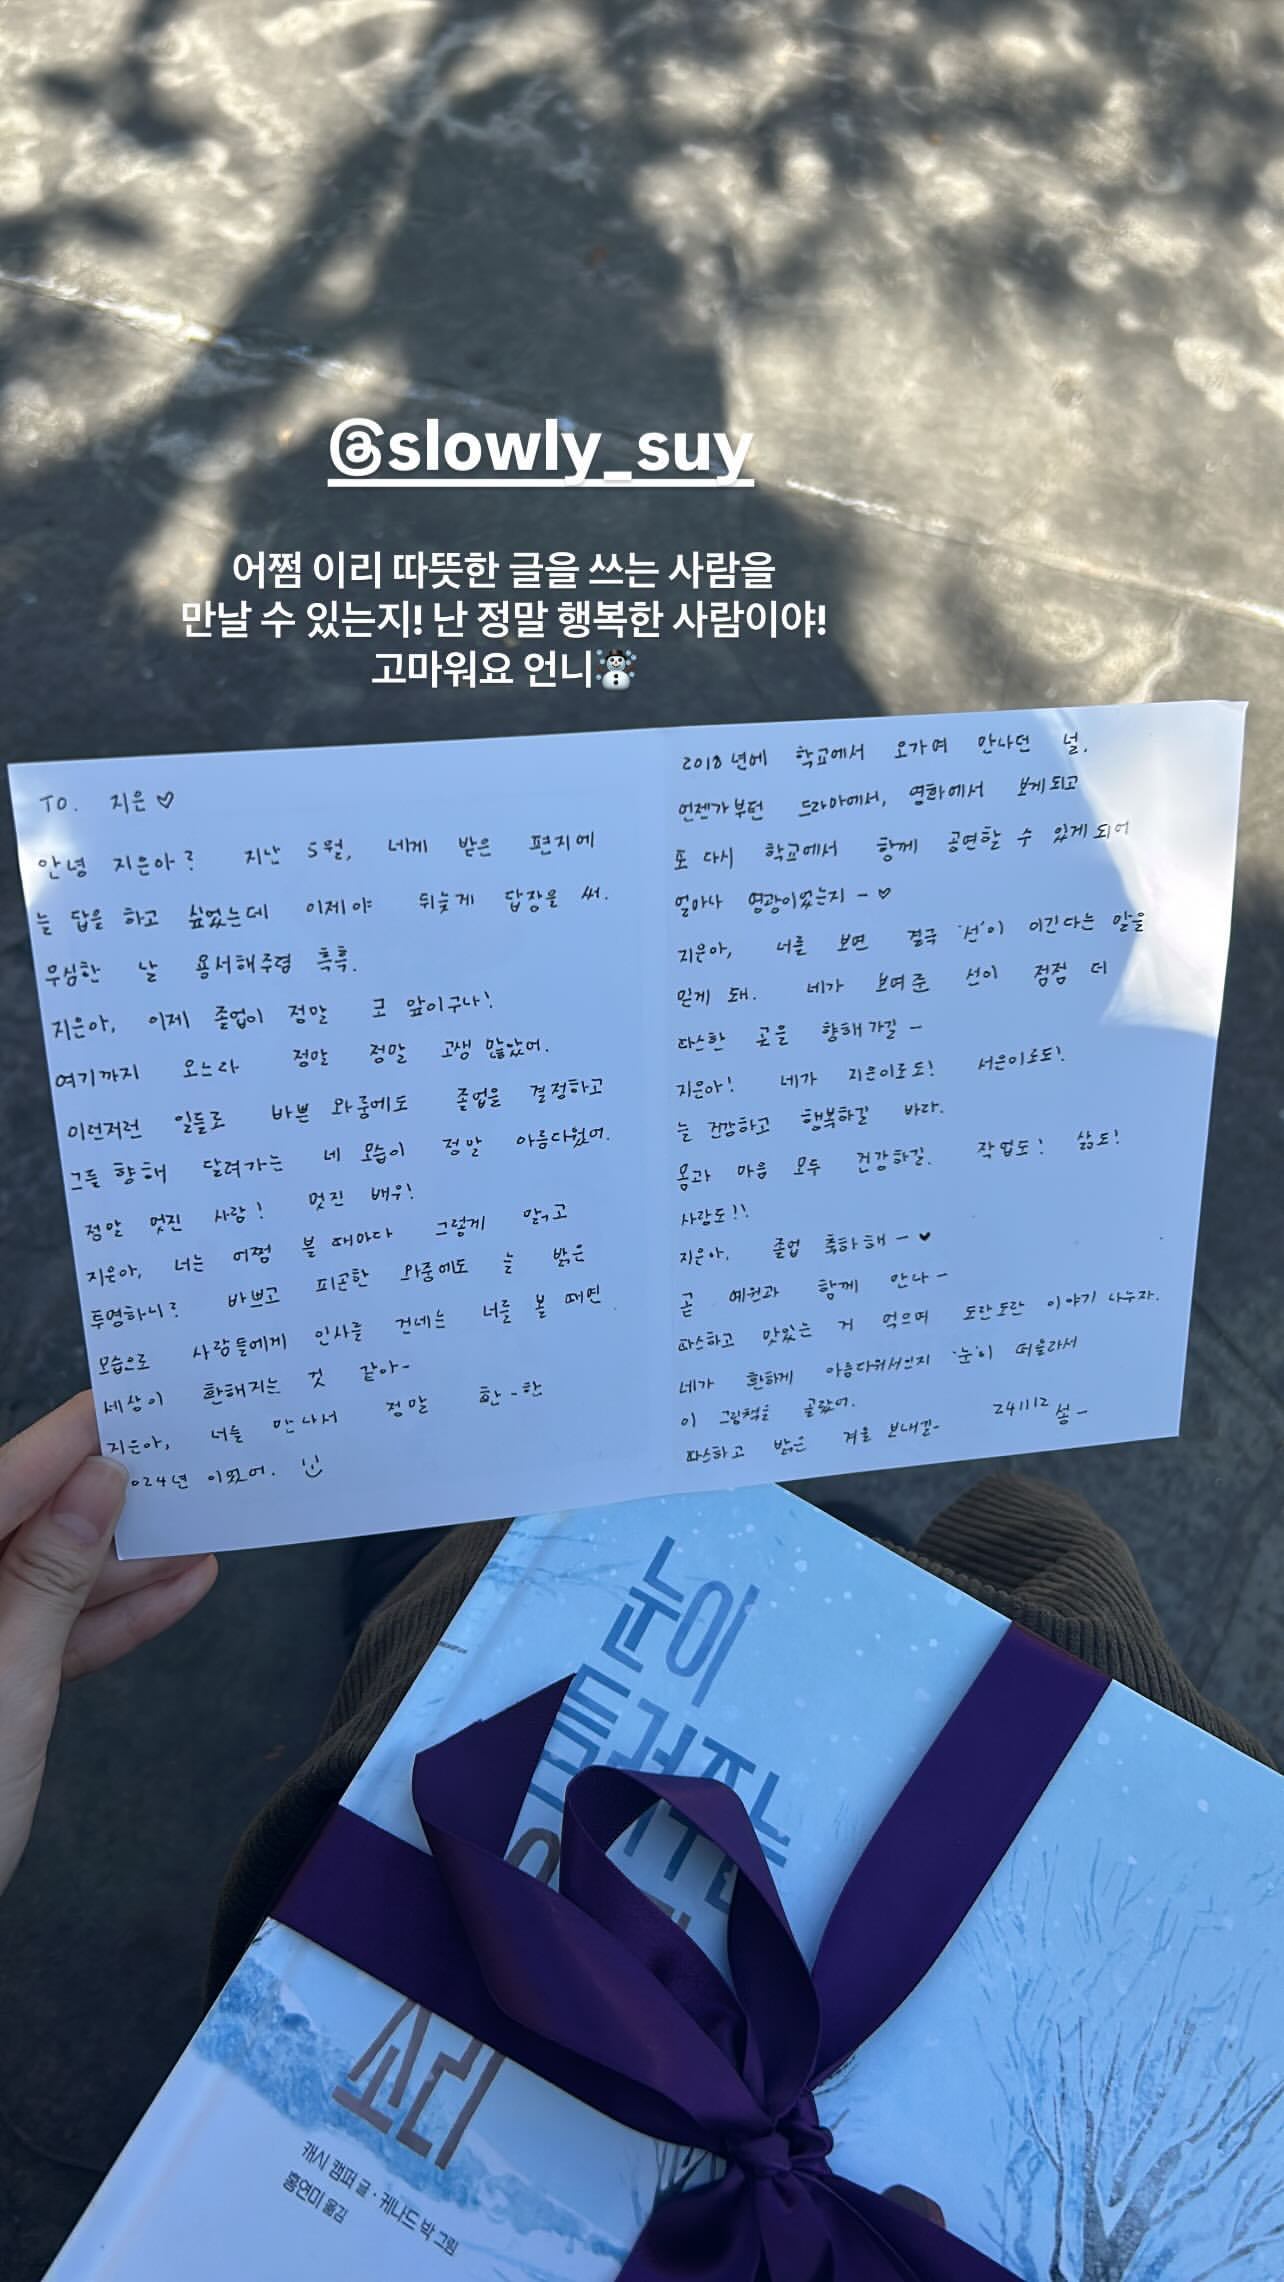 @slowly_suy
어쩜 이리 따뜻한 글을 쓰는 사람을
만날 수 있는지! 난 정말 행복한 사람이야!
고마워요 언니☃️
TO. 지은♡
안녕 지은아? 지난 5월, 네게 받은 편지에
늘 답을 하고 싶었는데 이제야 뒤늦게 답장을 써.
무심한 날 용서해주렴 흑흑.
지은아, 이제 졸업이 정말 코 앞이구나!
여기까지 오느라 정말 정말 고생 많았어.
이런저런 일들로 바쁜 와중에도 졸업을 결정하고
그를 향해 달려가는 네 모습이 정말 아름다웠어.
정말 멋진 사람! 멋진 배우!
지은아, 너는 어쩜 볼 때마다 그렇게 맑고
투명하니? 바쁘고 피곤한 와중에도 늘 밝은
모습으로 사람들에게 인사를 건네는 너를 볼 때면
세상이 환해지는 것 같아-
지은아, 너를 만나서 정말 환-한
024년 이었어. :)
2018년에 학교에서 오가며 만나던 널.
언젠가부턴 드라마에서, 영화에서 보게되고
또 다시 학교에서 함께 공연할 수 있게되어
얼마나 영광이었는지-♡
지은아, 너를 보면 결국 '선'이 이긴다는 말을
믿게 돼. 네가 보여준 선이 점점 더
따스한 곳을 향해가길-
지은아! 네가 지은이로도! 서은이로도!
늘 건강하고 행복하길 바라.
몸과 마음 모두 건강하길. 작업도! 삶도!
사람도!!
지은아. 졸업 축하해-♥
곧 예원과 함께 만나-
따스하고 맛있는 거 먹으며 도란도란 이야기 나누자.
네가 환하게 아름다워서인지 '눈'이 떠올라서
이 그림책을 골랐어.
따스하고 밝은 겨울 보내길-
241112
눈이
들려주는
소리
캐시 캠퍼 글·케나드 박 그림
홍연미 옮김